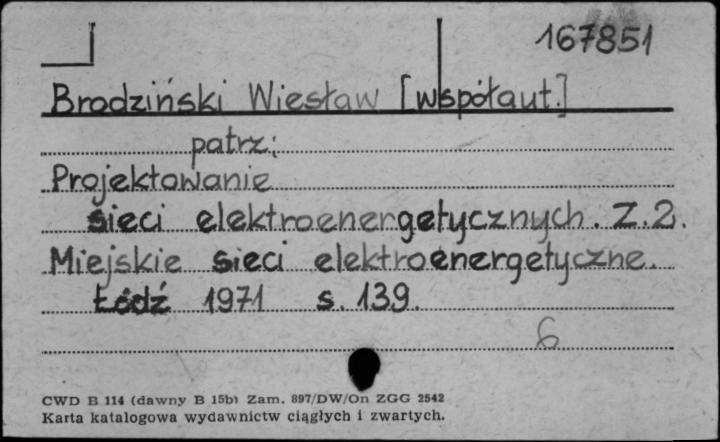 167851
Brodziński Wiesław [współaut.]
patrz:
Projektowanie
sieci elektroenergetycznych. Z.2.
Miejskie sieci elektroenergetyczne.
Łódź 1971 s. 139.
6
CWD B 114 (dawny B 15b) Zam. 897/DW/On ZGG 2542
Karta katalogowa wydawnictw ciągłych i zwartych.